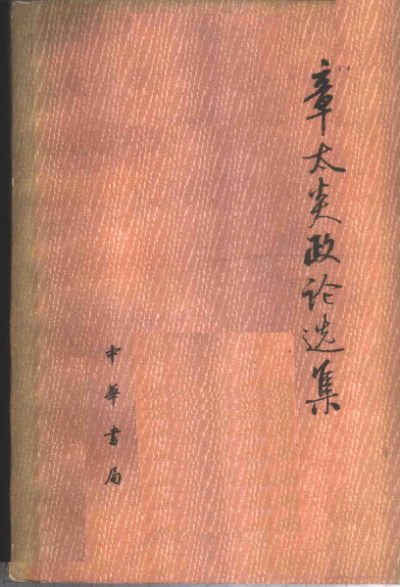 章太炎政论选集
中華書局